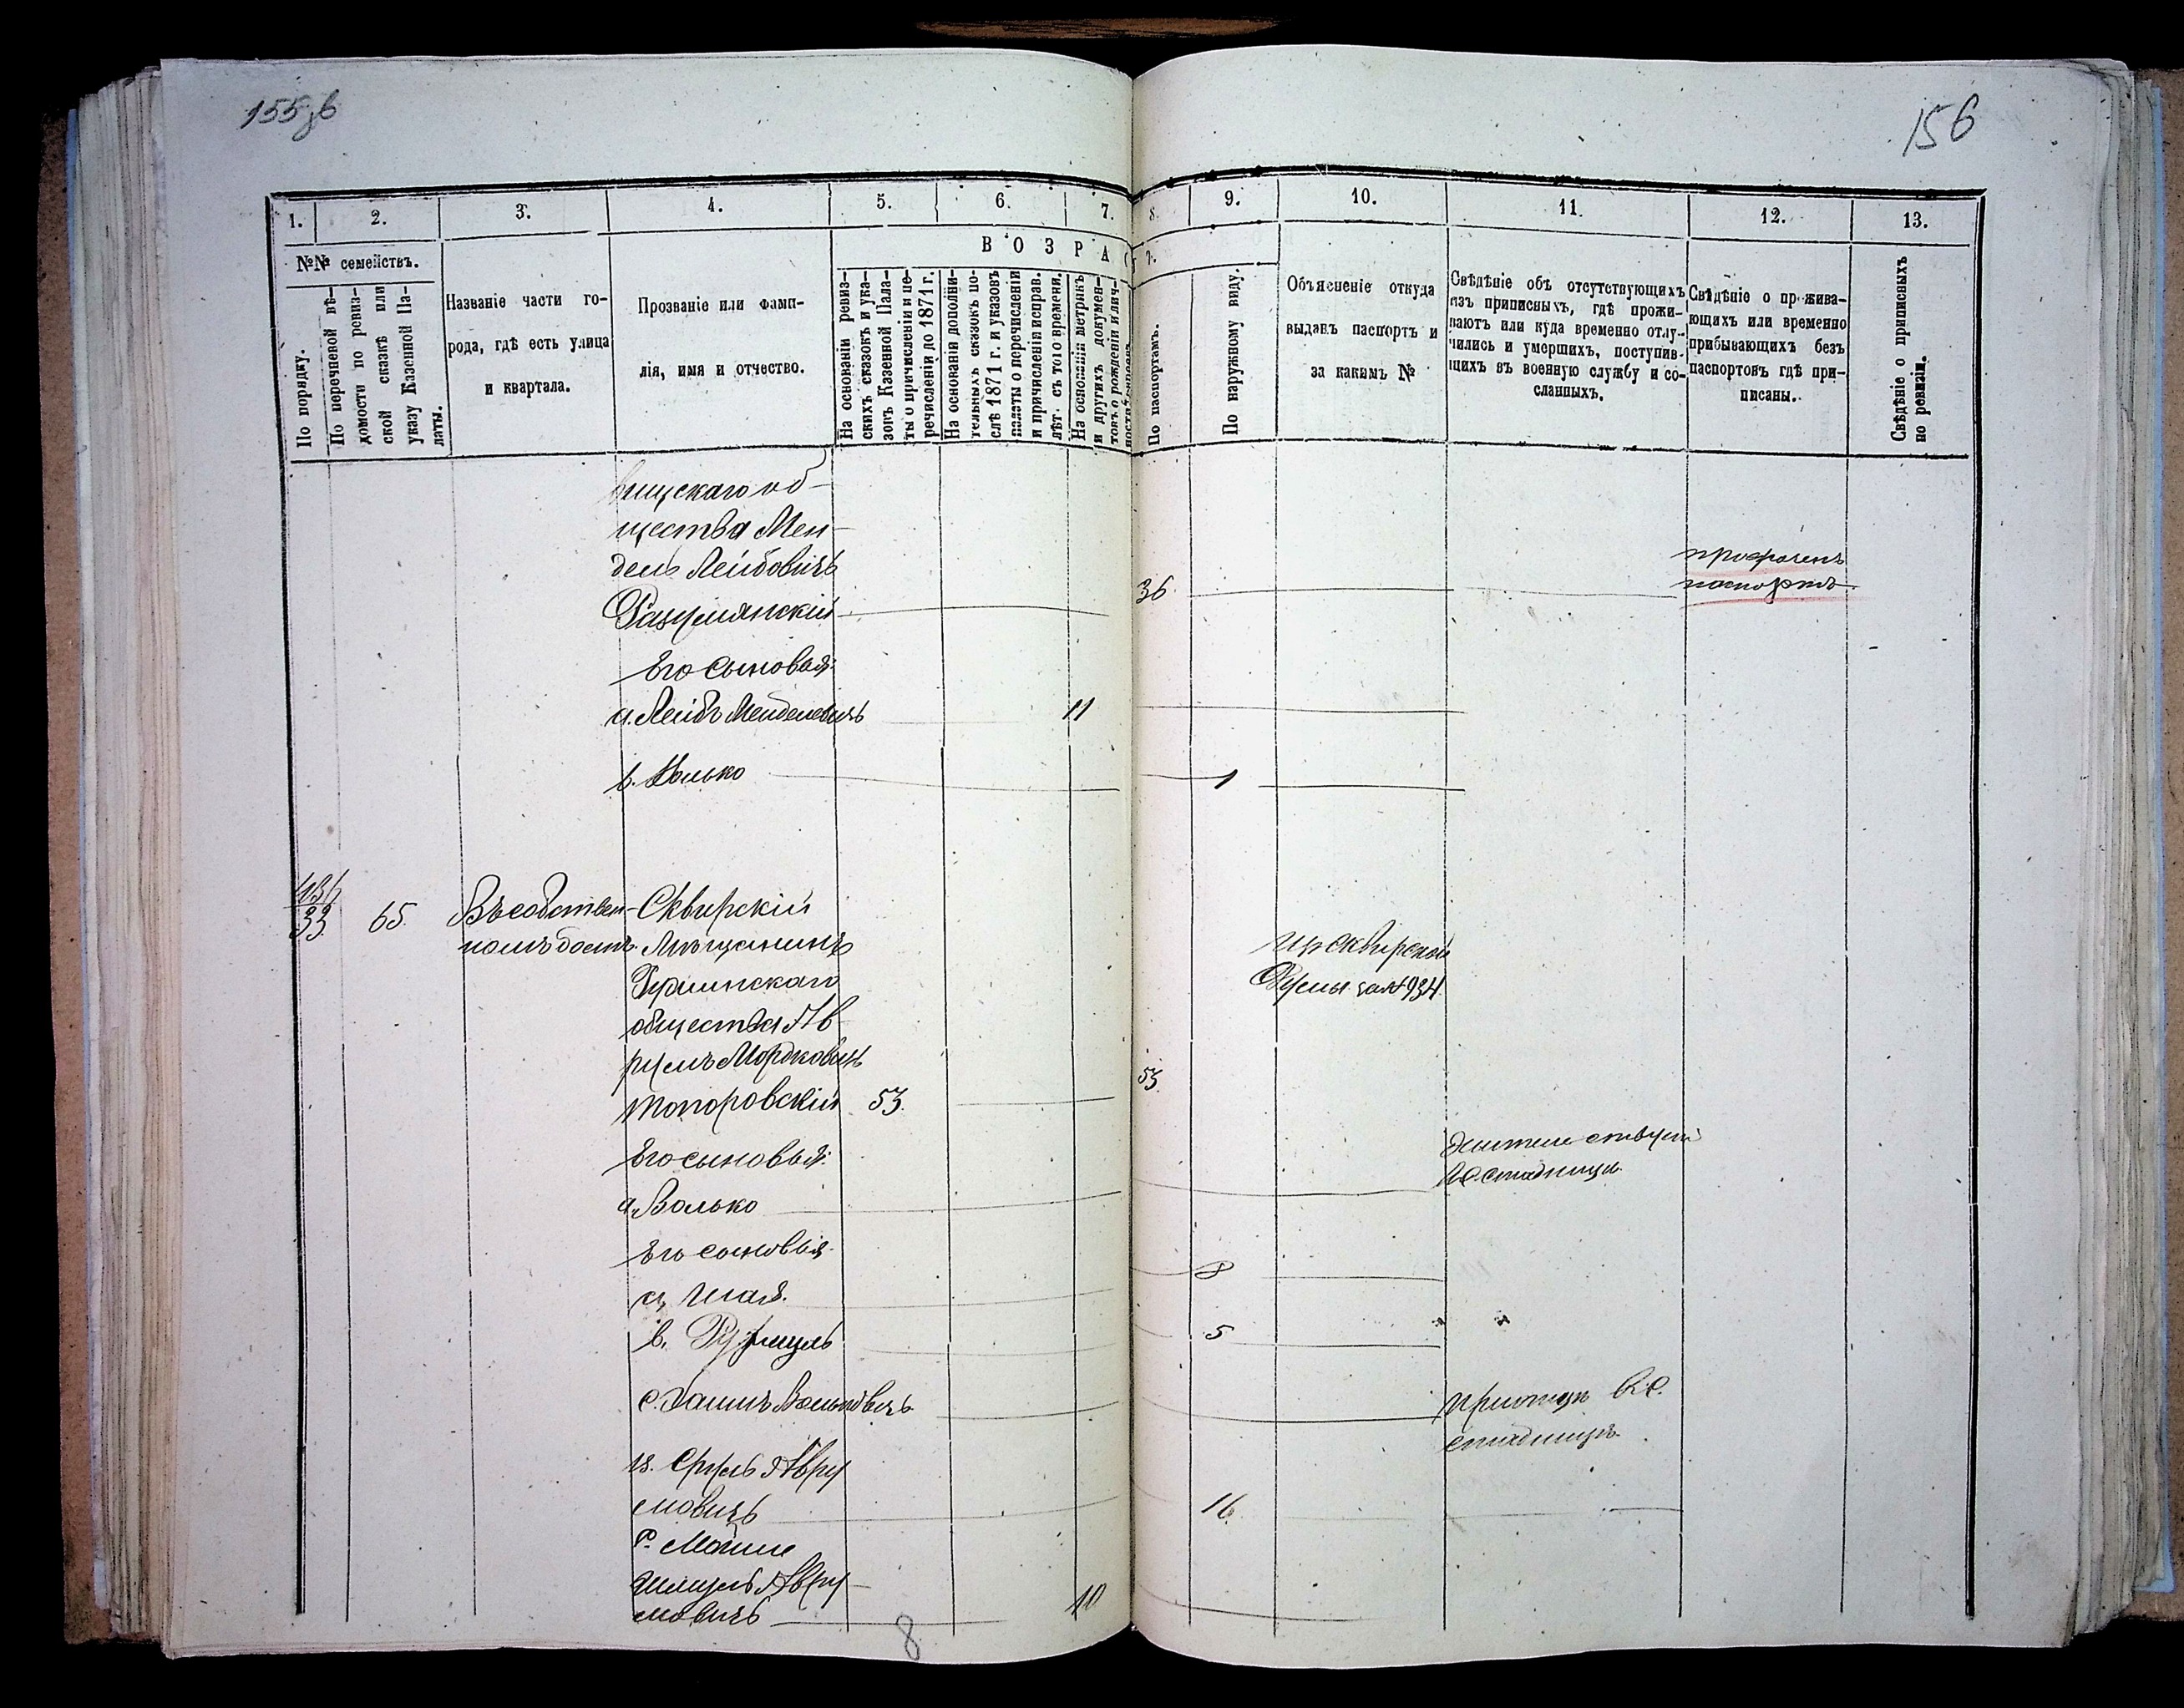 155 зв
156
1.
2.
3.
4.
5.
6.
7.
8.
9.
10.
11.
12.
13.
№№ семействъ.
ВОЗРА
По порядку.
По перечневой вѣ-
домости по ревиз-
ской сказкѣ или
указу Казенной Па-
латы.
Названіе части го-
рода, гдѣ есть улица
и квартала.
Прозваніе или фами-
лія, имя и отчество.
На основаніи ревиз-
скихъ сказокъ и ука-
зовъ Казенной Пала-
ты о причисленіи и пе-
речисленіи до 1871 г.
На основаніи дополни-
тельныхъ сказокъ по-
слѣ 1871 г. и указовъ
палаты о перечисленіи
и причисленіи исправ.
лѣт. съ того времени.
На основаніи метрикъ
и другихъ докумен-
товъ о рожденіи и лич-
По паспортамъ.
По наружному виду.
Объясненіе откуда
выданъ паспортъ и
за какимъ №
Свѣдѣніе объ отсутствующихъ
изъ приписныхъ, гдѣ прожи-
ваютъ или куда временно отлу-
чились и умершихъ, поступив-
шихъ въ военную службу и со-
сланныхъ.
Свѣдѣніе о прожива-
ющихъ или временно
прибывающихъ безъ
паспортовъ гдѣ при-
писаны.
Свѣдѣніе о приписныхъ
по ревизіи.
общества Мен-
дель Лейбовичъ
36
просроченъ
паспортъ
Его сыновья:
а. Лейбъ Менделевичъ 11
в. Волько 1
33 65 Въ собствен- Сквирскій
номъ домѣ. Мѣщанинъ
изъ Сквирской
Думы за № 934
общества Ав
румъ Мордковичъ
Топоровскій 53. 53.
Его сыновья:
а. Волько
жительствуетъ
Его сыновья.
а, Шая. 8
в. 5
с. Вольковичъ
в. Сруль Авру
мовичъ 16
Мошко
Шмуль Авру-
мовичъ 10
8